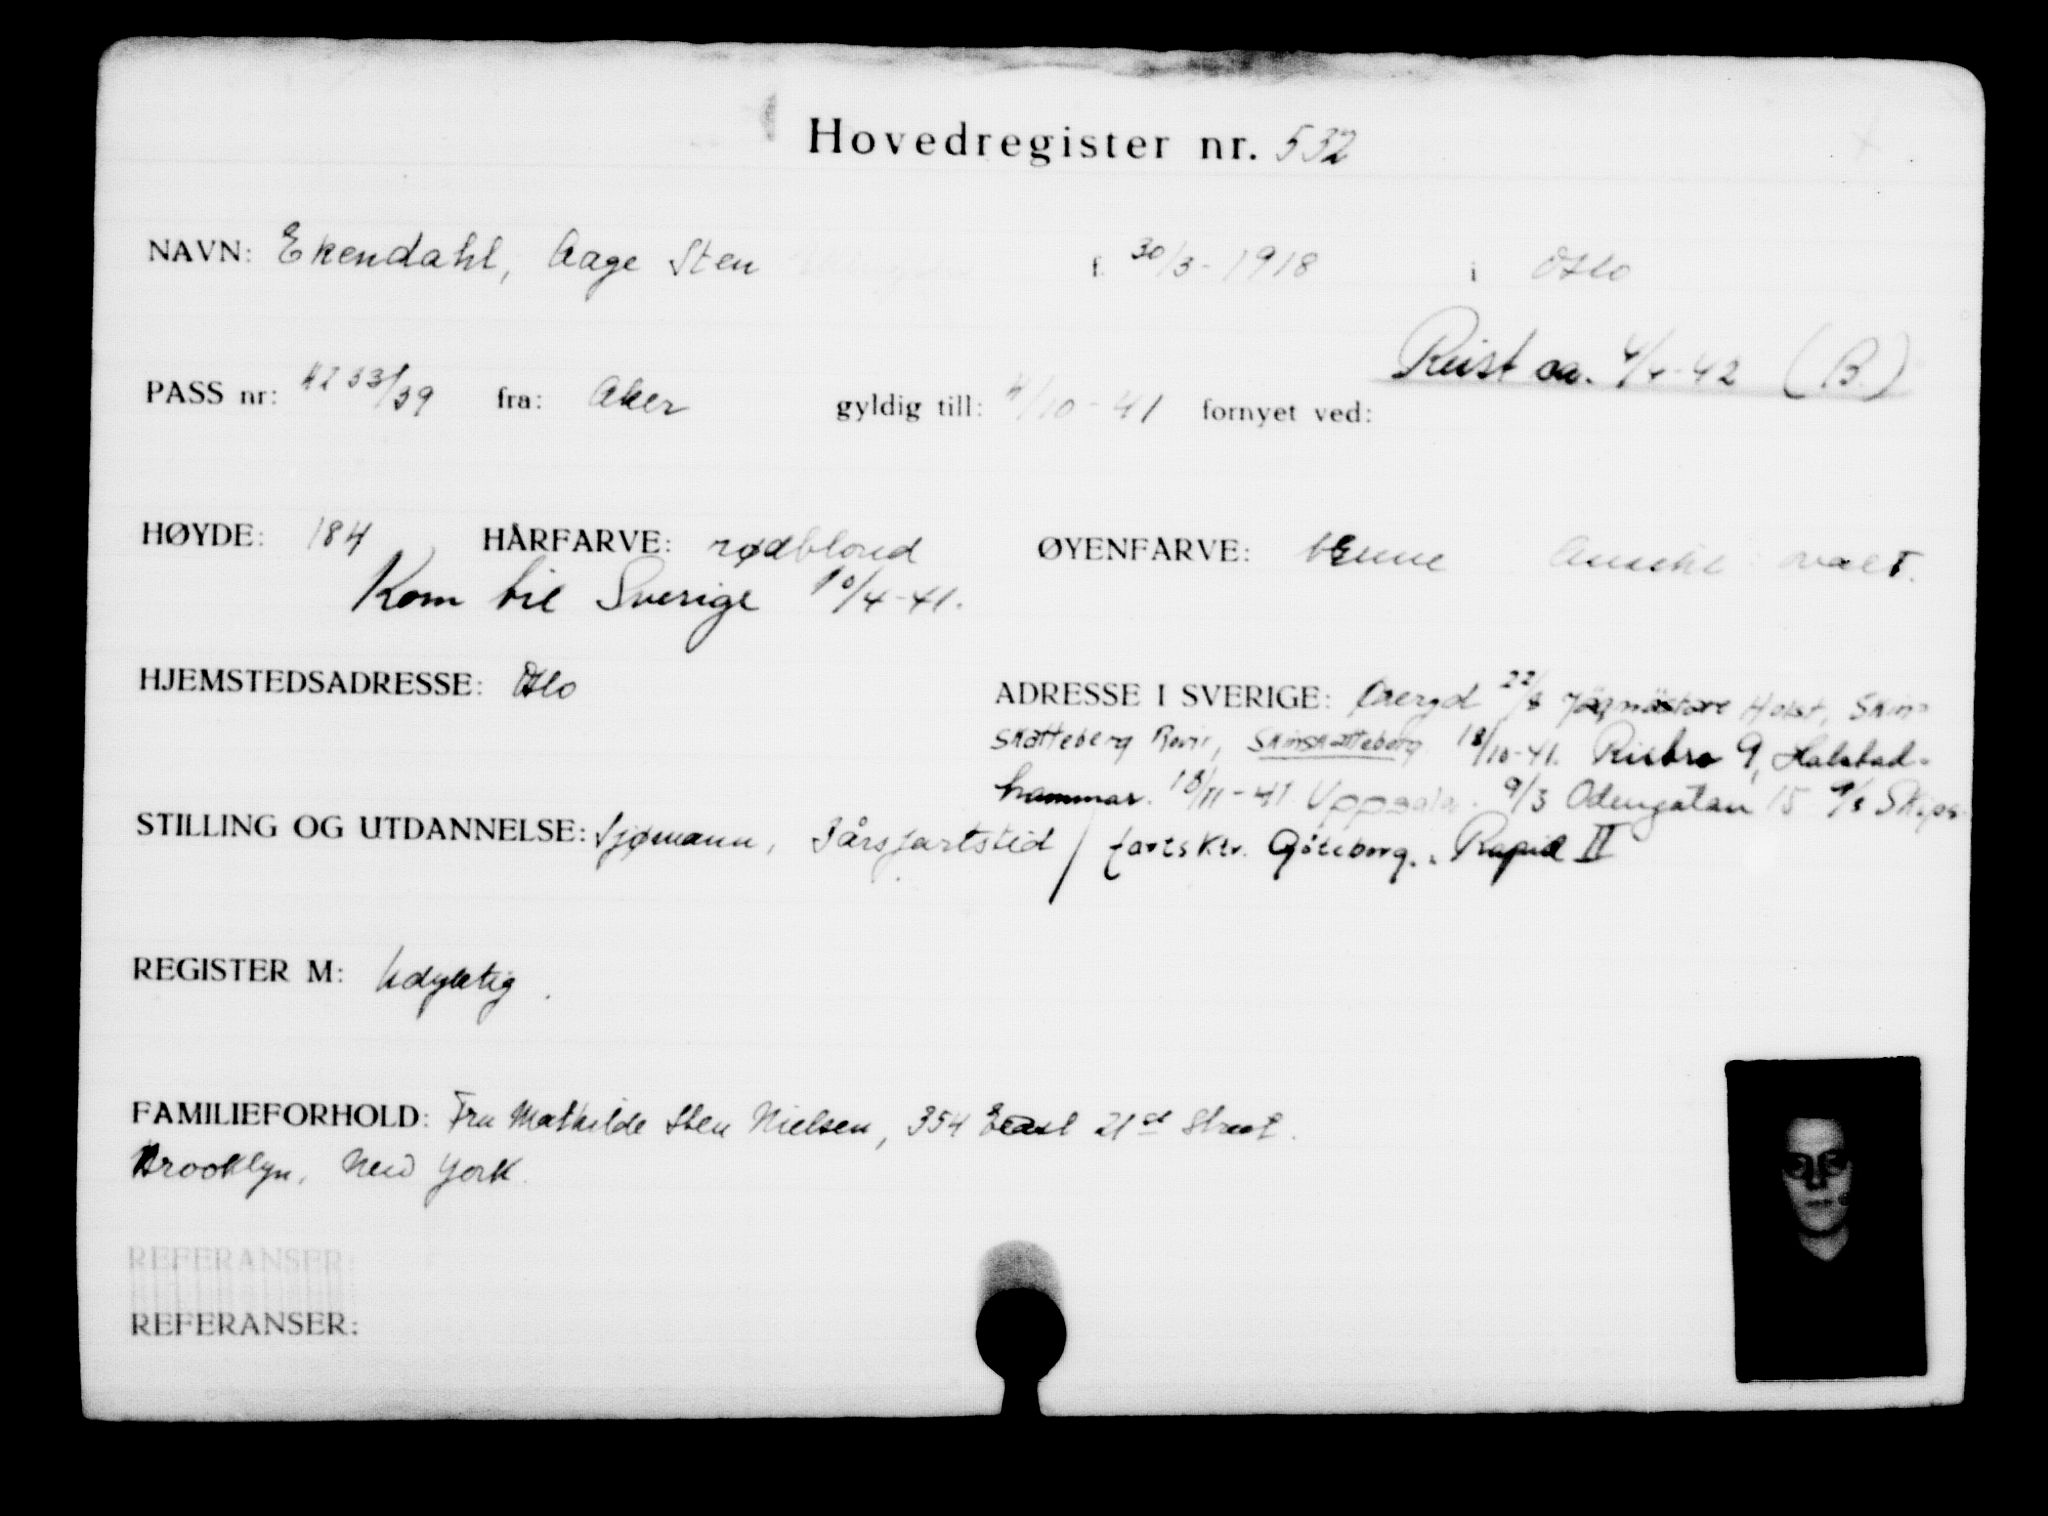 Hovedregister nr. 532
NAVN: Ekendahl, Aage Sten f. 30/3-1918 i Oslo
Reist ca. 4/4-42 (B.)
PASS nr: 4233/39 fra: Aker gyldig till: 4/10-41 fornyet ved:
HØYDE: 184 HÅRFARVE: rødblond ØYENFARVE: ovalt.
Kom til Sverige 10/4-41.
HJEMSTEDSADRESSE: Oslo
ADRESSE I SVERIGE: Öreryd 22/8 Jägmästare Holst, Skin-
skatteberg Revir, Skinskatteberg 18/10-41. Risbro 9, Halstad-
hammar. 18/11-41 Uppsala. 9/3 Odengatan 15 9/3 Skips-
fartsktr. Göteborg. Rapid II
STILLING OG UTDANNELSE: Sjømann, 3 års fartstid
REGISTER M: Udyktig.
FAMILIEFORHOLD: Fru Mathilde Sten Nielsen, 354 East 21st Street.
Brooklyn, New York.
REFERANSER:
REFERANSER: